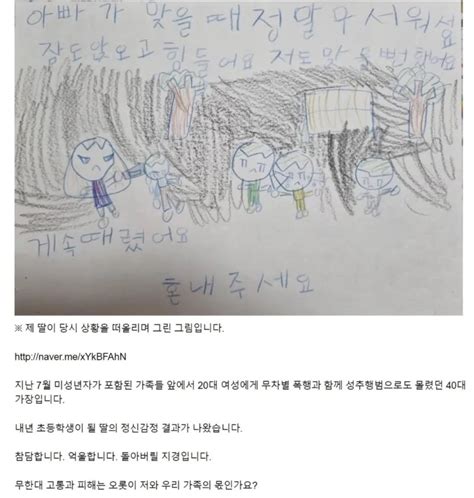 아빠가 맞을때정말무서워서
잠도앖오고힘들어요 저도맞을뻔했어요
게속때렸어요
혼내주세요
※ 제 딸이 당시 상황을 떠올리며 그린 그림입니다.
http://naver.me/xYkBFAhN
지난 7월 미성년자가 포함된 가족들 앞에서 20대 여성에게 무차별 폭행과 함께 성추행범으로도 몰렸던 40대
가장입니다.
내년 초등학생이 될 딸의 정신감정 결과가 나왔습니다.
참담합니다. 억울합니다. 돌아버릴 지경입니다.
무한대 고통과 피해는 오롯이 저와 우리 가족의 몫인가요?